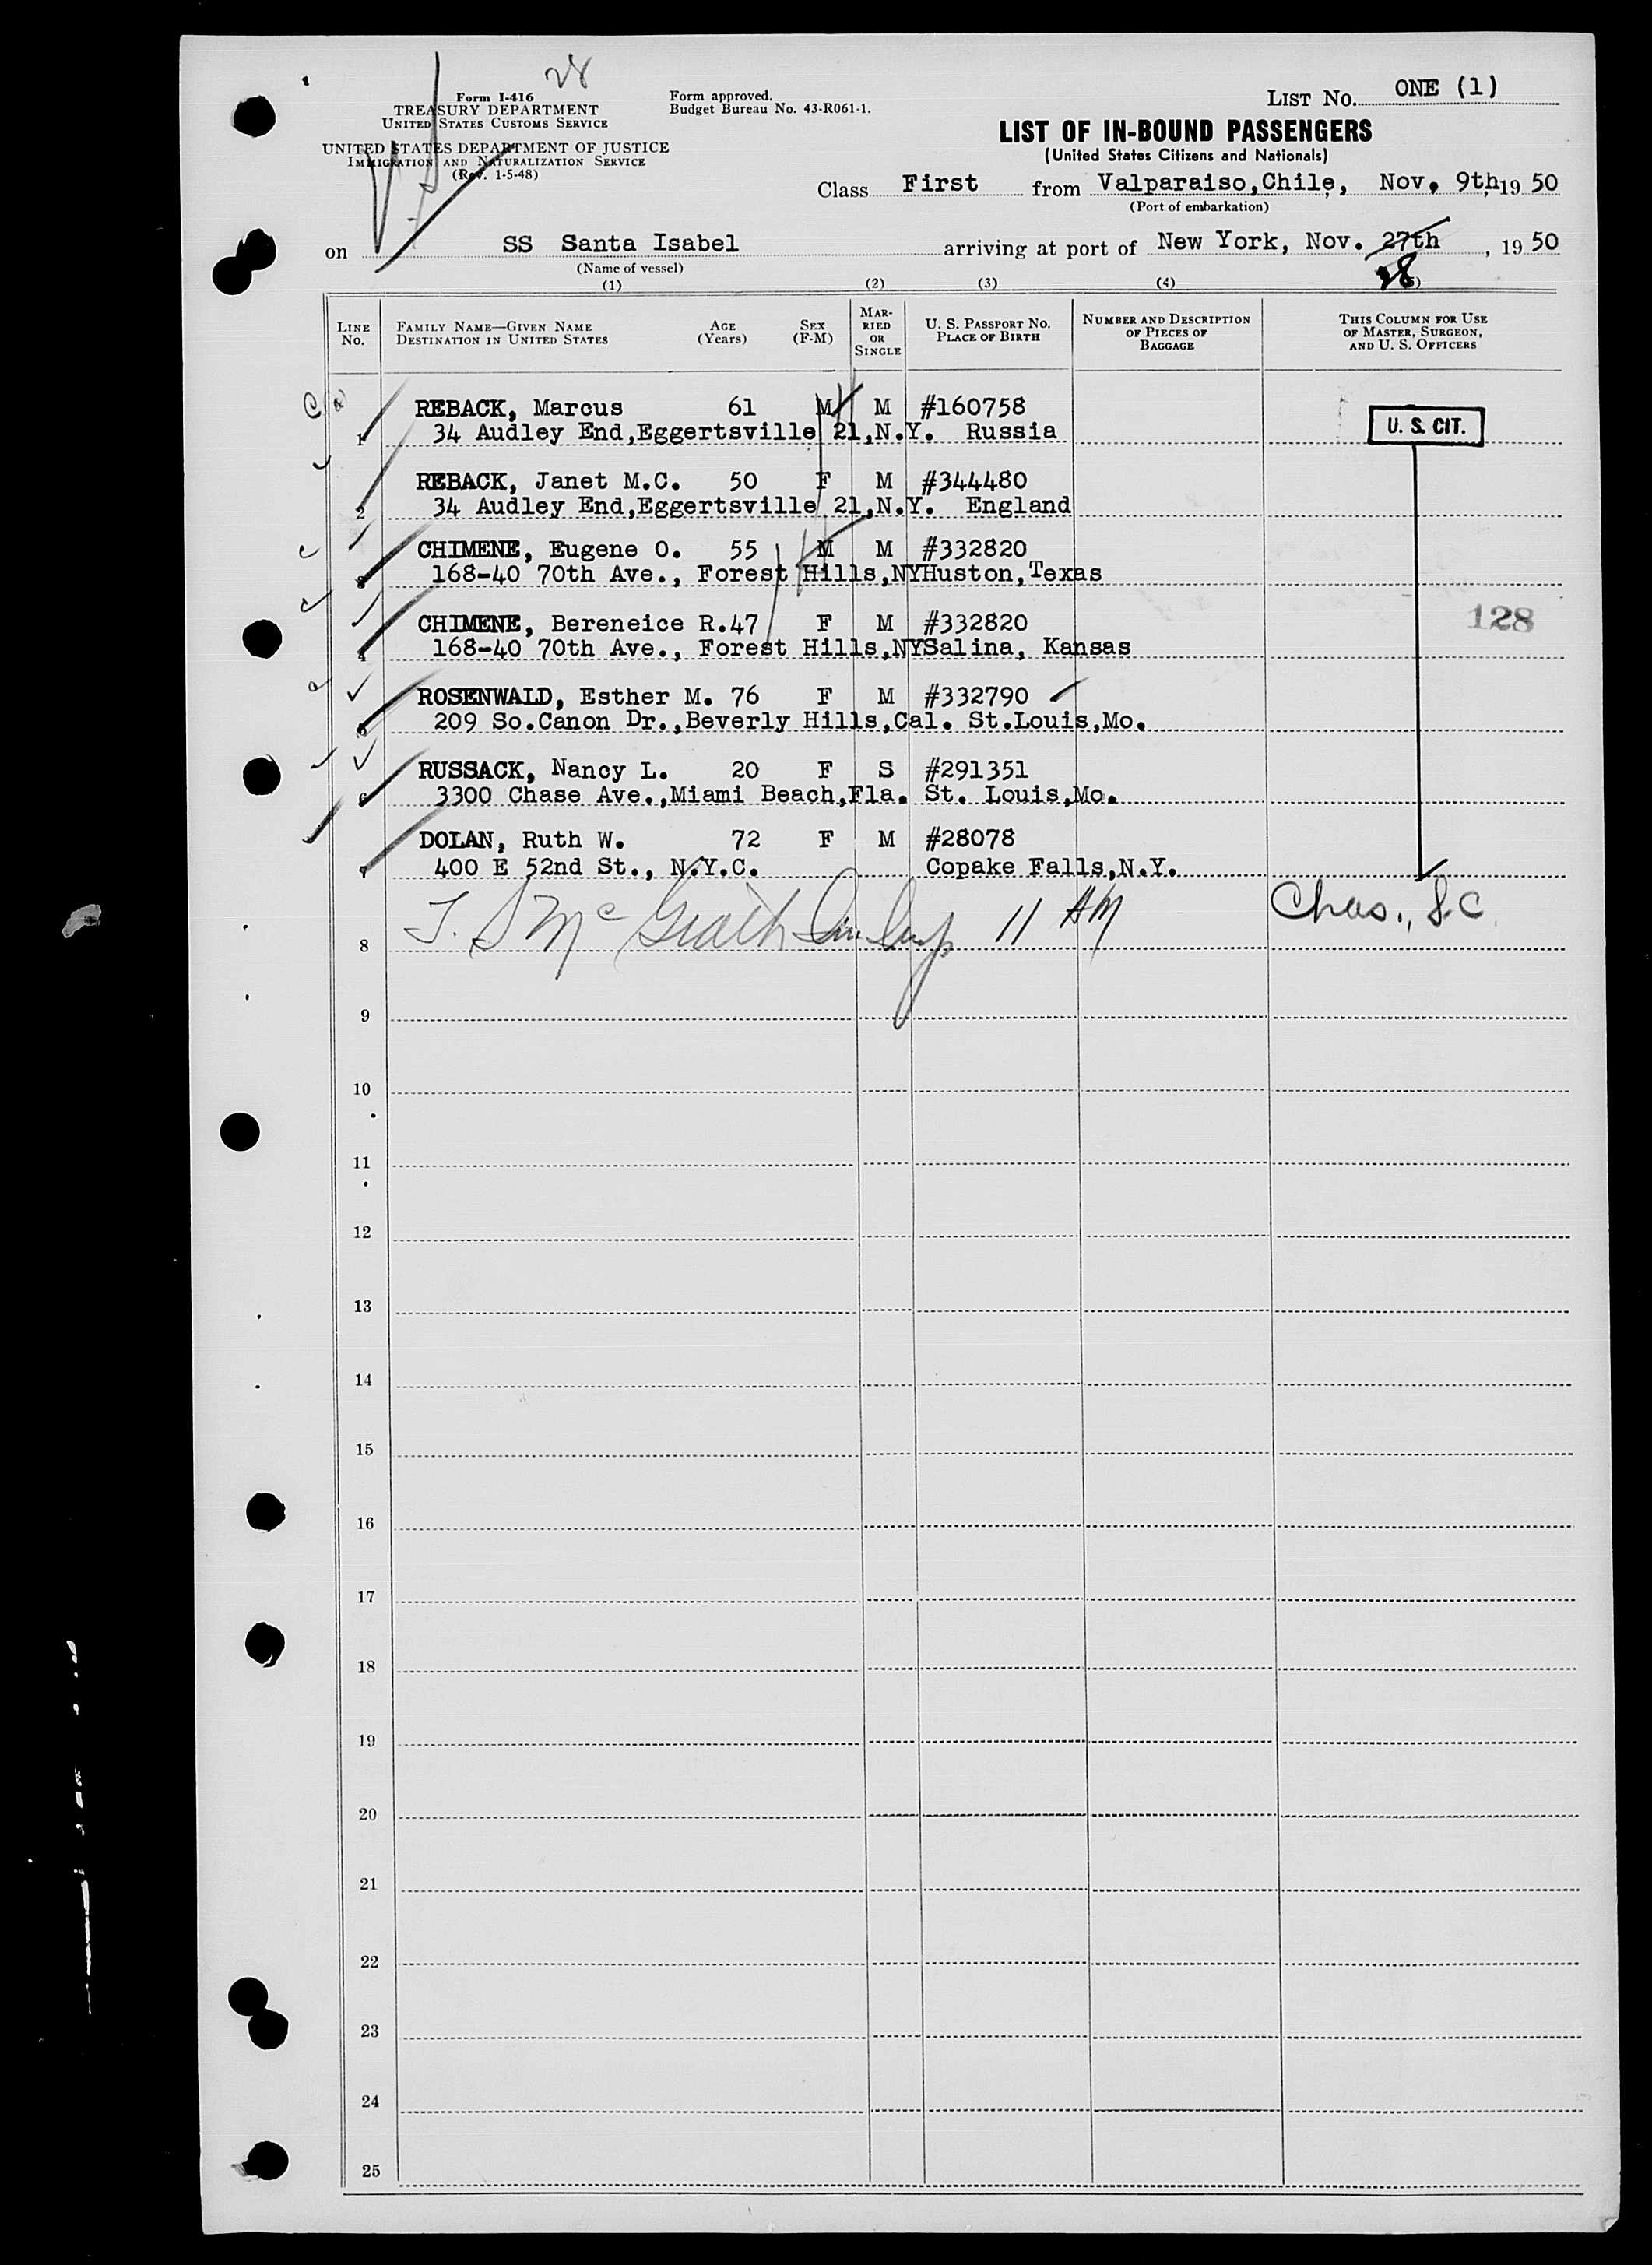 28
Form I-416
TREASURY DEPARTMENT
UNITED STATES CUSTOMS SERVICE
UNITED STATES DEPARTMENT OF JUSTICE
IMMIGRATION AND NATURALIZATION SERVICE
(Rev. 1-5-48)
Form approved.
Budget Bureau No. 43-R061-1.
LIST NO. ONE (1)
LIST OF IN-BOUND PASSENGERS
(United States Citizens and Nationals)
Class First from Valparaiso,Chile, Nov. 9th, 19 50
(Port of embarkation)
on SS Santa Isabel arriving at port of New York, Nov. 27th , 19 50
28
(Name of vessel)
(1) (2) (3) (4) (5)
LINE NO. FAMILY NAME—GIVEN NAME DESTINATION IN UNITED STATES AGE (Years) SEX (F-M) MARRIED OR SINGLE U. S. PASSPORT NO. PLACE OF BIRTH NUMBER AND DESCRIPTION OF PIECES OF BAGGAGE THIS COLUMN FOR USE OF MASTER, SURGEON, AND U. S. OFFICERS
REBACK, Marcus 61 M M #160758
1 34 Audley End,Eggertsville 21,N.Y. Russia U. S. CIT.
REBACK, Janet M.C. 50 F M #344480
2 34 Audley End,Eggertsville 21,N.Y. England
CHIMENE, Eugene O. 55 M M #332820
3 168-40 70th Ave., Forest Hills,NY Huston,Texas
CHIMENE, Bereneice R. 47 F M #332820 128
4 168-40 70th Ave., Forest Hills,NY Salina, Kansas
ROSENWALD, Esther M. 76 F M #332790
5 209 So.Canon Dr.,Beverly Hills,Cal. St.Louis,Mo.
RUSSACK, Nancy L. 20 F S #291351
6 3300 Chase Ave.,Miami Beach,Fla. St. Louis,Mo.
DOLAN, Ruth W. 72 F M #28078
7 400 E 52nd St., N.Y.C. Copake Falls,N.Y.
T. S McGrath Imm Insp 11 AM Chas., S.C
8
9
10
11
12
13
14
15
16
17
18
19
20
21
22
23
24
25